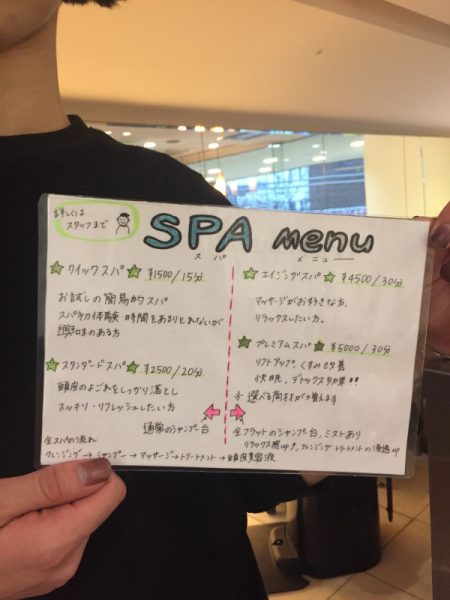 詳しくは
スタッフまで
SPA menu
スパ メニュー
クイックスパ ¥1500/15分
お試しの簡易的スパ
スパ初体験・時間をあまりとれないが
興味のある方
スタンダードスパ ¥2500/20分
頭皮のよごれをしっかり落とし
スッキリ・リフレッシュしたい方
通常のシャンプー台
全スパの流れ
クレンジング→シャンプー→マッサージ→トリートメント→頭皮美容液
エイジングスパ ¥4500/30分
マッサージがお好きな方、
リラックスしたい方。
プレミアムスパ ¥5000/30分
リフトアップ、くすみ改善
快眠、デトックス効果!!
※選べる商材が増えます
全フラットのシャンプー台、ミストあり
リラックス感up↑、クレンジング・トリートメントの浸透up